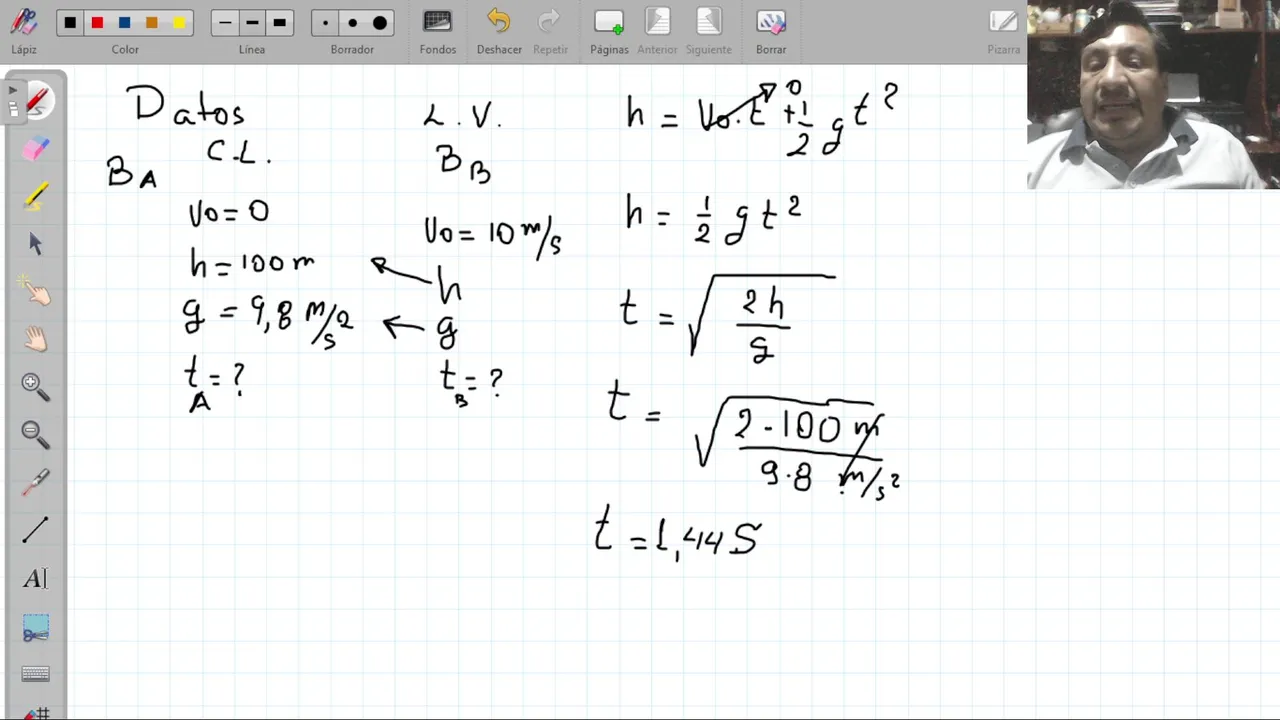 Lápiz
Color
Línea
Borrador
Fondos
Deshacer
Repetir
Páginas
Anterior
Siguiente
Borrar
Pizarra
Datos
C.L.
BA
Vo = 0
h = 100 m
g = 9,8 m/s2
tA = ?
L.V.
BB
Vo = 10 m/s
h
g
tB = ?
h = Vo.t 0 + 1/2 g t2
h = 1/2 g t2
t = √ 2h/g
t = √ 2-100 m / 9.8 m/s2
t = 1,44 S
AI